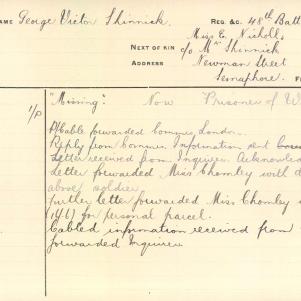 NAME George Victor Shinnick REG &C. 48th Batt
NEXT OF KIN Miss E. Nicholls,
ADDRESS c/o Mrs Shinnick
Newman Street
Semaphore.
1/P "Missing" Now Prisoner of W
Cable forwarded Commrs, London.
Reply from Commrs. Information sent
Letter received from Inquirer. Acknowle
Letter forwarded Miss Chomley with d
above soldier
further letter forwarded Miss Chomley
for personal parcel.
Cabled information received from
forwarded Inquirer